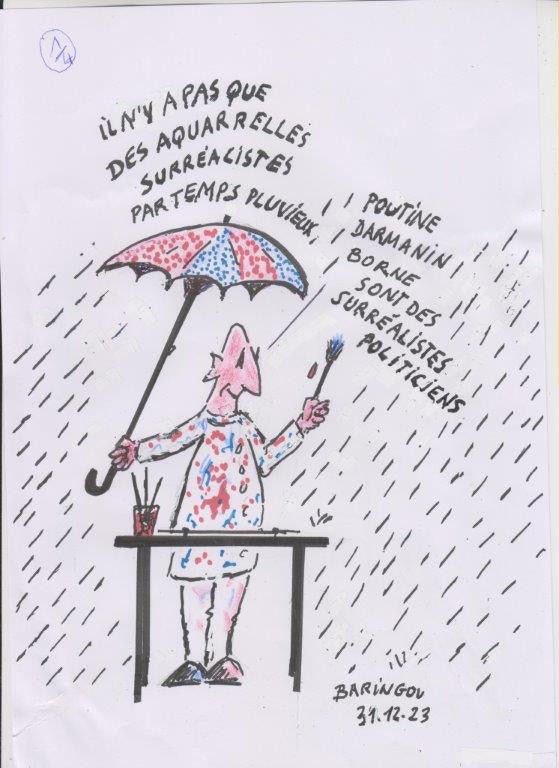 1/4
IL N'Y A PAS QUE
DES AQUARRELLES
SURRÉALISTES
PAR TEMPS PLUVIEUX,
POUTINE
DARMANIN
BORNE
SONT DES
SURRÉALISTES
POLITICIENS
BARINGOU
31.12.23